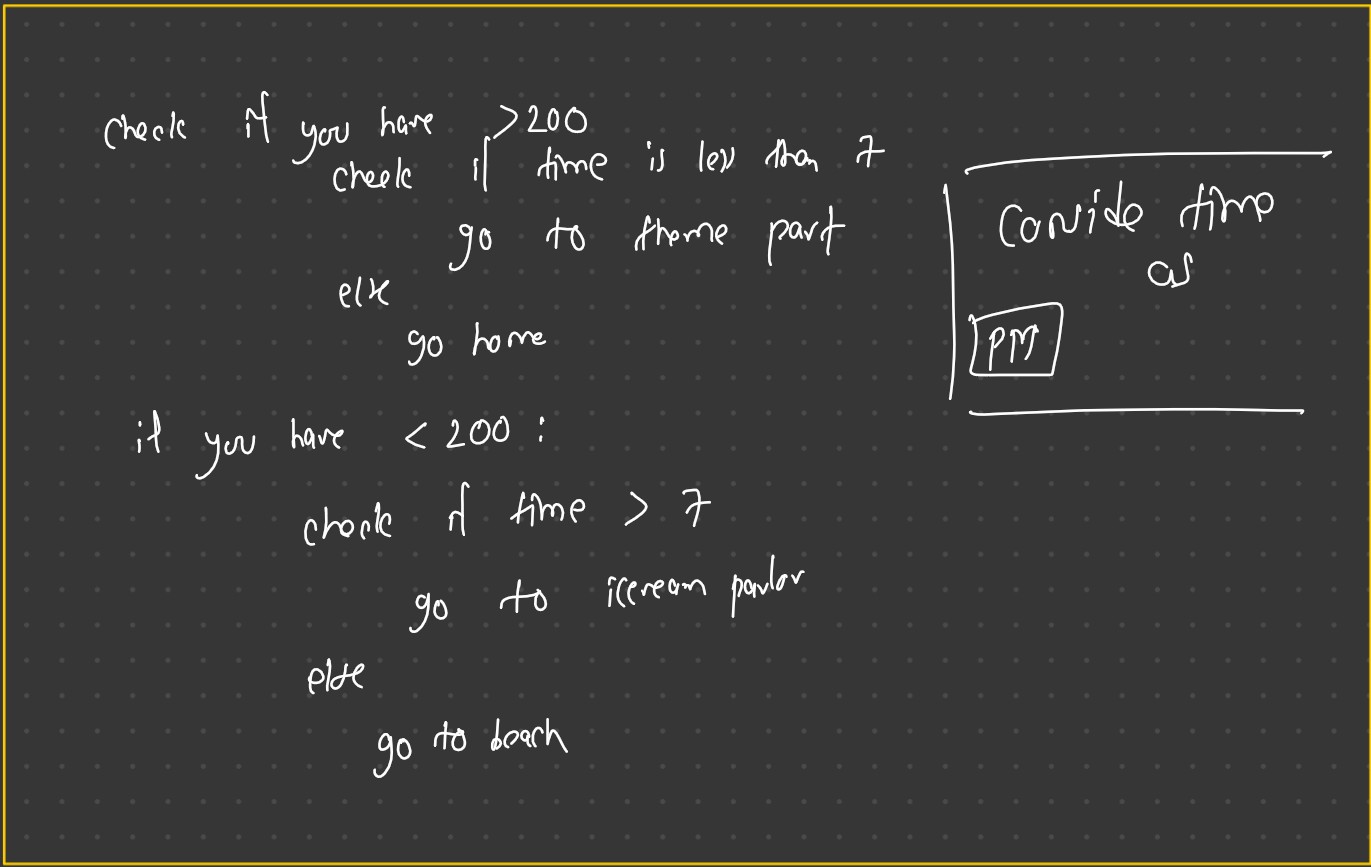 check if you have >200
check if time is less than 7
go to theme part
else
go home
if you have < 200 :
check if time > 7
go to iceream parlor
else
go to beach
time
as
PM